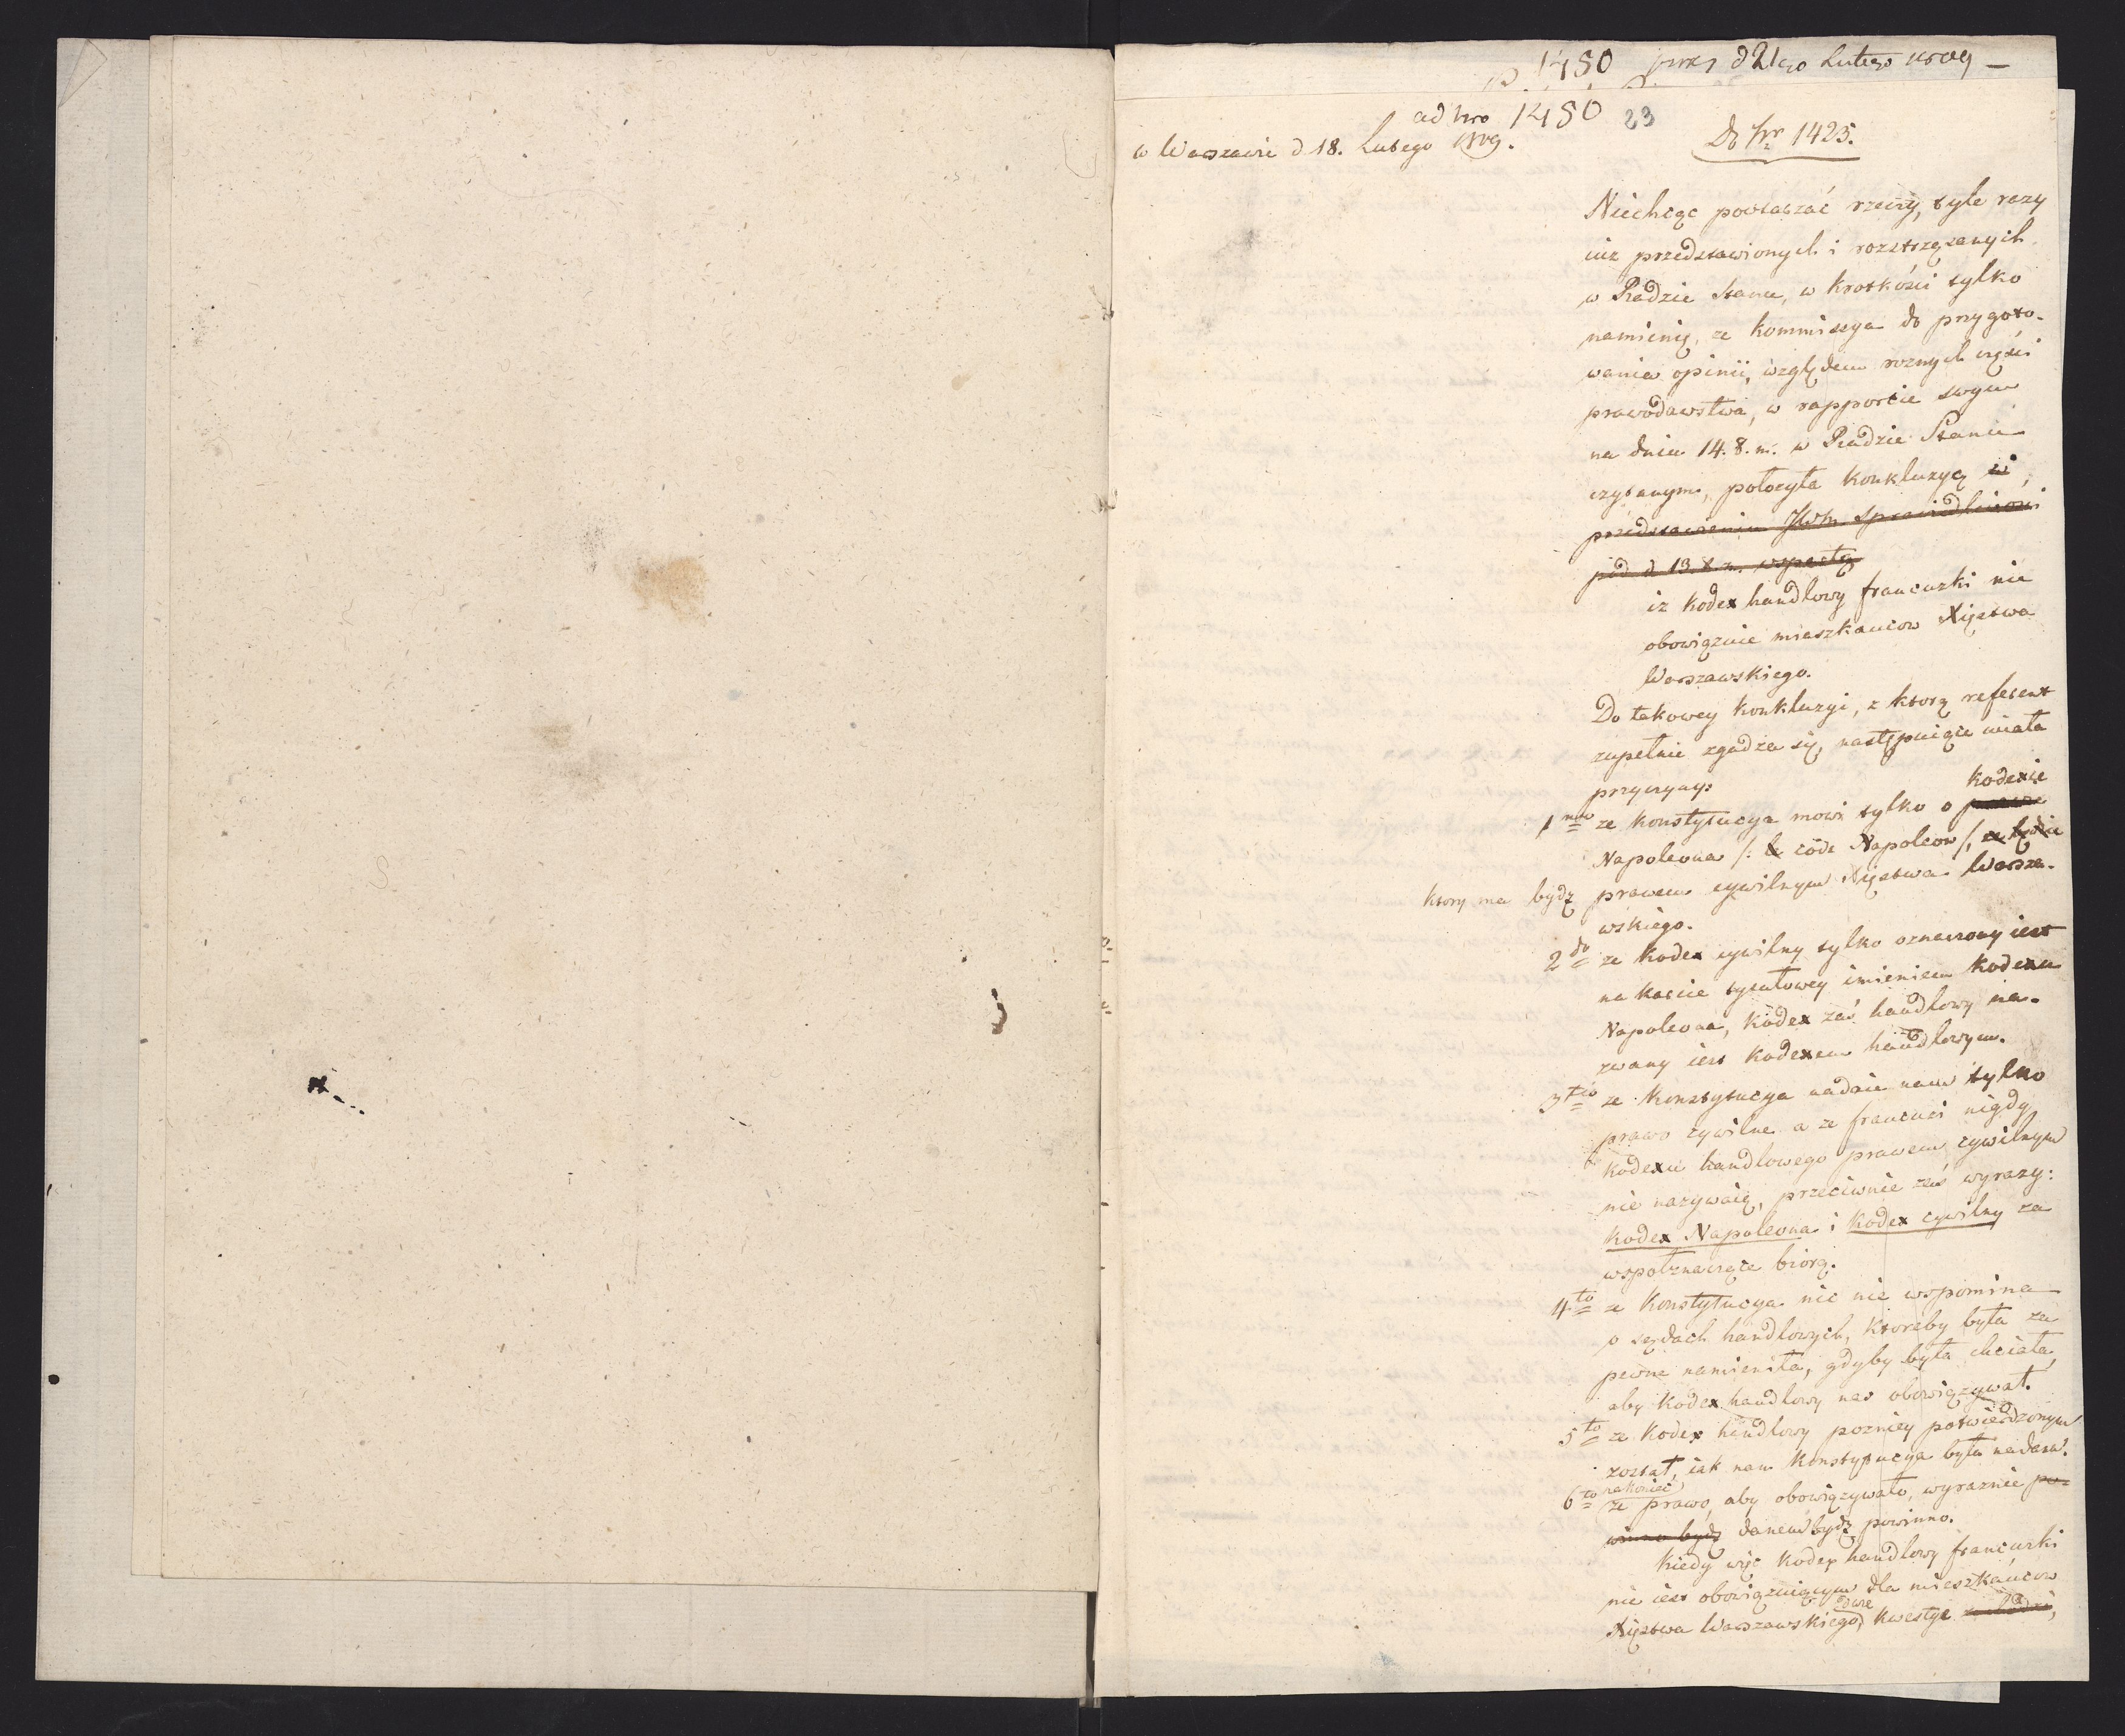 1450 d 21go Lutego
ad nro 1450 23
w Warszawie d 18. Lutego 1809.
Do Nr 1425.
Niechcąc powtarzać rzeczy, tyle razy
iuż przedstawionych i roztrząsanych
w Radzie Stanu, w krotkości tylko
namienię, ze kommissya do przygoto-
wania opinii, względem roznych części
prawodawstwa, w rapporcie swym
na dniu 14. b. m. w Radzie Stanu
czytanym, połozyła konkluzyą w
przedstawieniu JWM. Sprawiedliwości
pod d 13. b. m. wspartą
iz kodex handlowy francuzki nie
obowiązuie mieszkancow Xięstwa
Warszawskiego.
Do takowey konkluzyi, z ktorą referent
zupełnie zgadza się, następuiące miała
przyczyny:
1mo ze konstytucya mowi tylko o prawie kodexie
Napoleona /: le code Napoleon /, ze będzie
ktory ma bydź prawem cywilnym Xięstwa Warsza-
wskiego.
2do ze kodex cywilny tylko oznaczony iest
na karcie tytułowey imieniem kodexu
Napoleona, kodex zaś handlowy na-
zwany iest kodexem handlowym.
3tio ze konstytucya nadaie nam tylko
prawo cywilne a ze francuzi nigdy
kodexu handlowego prawem cywilnym
nie nazywaią, przeciwnie zaś wyrazy:
kodex Napoleona i kodex cywilny za
wspołznaczące biorą.
4to ze konstytucya nic nie wspomina
o sądach handlowych, ktoreby była za
pewne namieniła, gdyby była chciała,
aby kodex handlowy nas obowiązywał.
5to ze kodex handlowy pozniey potwierdzonym
został, iak nam konstytucya była nadana.
6to nakoniec ze prawo, aby obowiązywało, wyraznie po-
winno bydź danem bydź powinno.
Kiedy więc kodex handlowy francuzki
nie iest obowiązuiącym dla mieszkańcow
Xięstwa Warszawskiego, kwestya